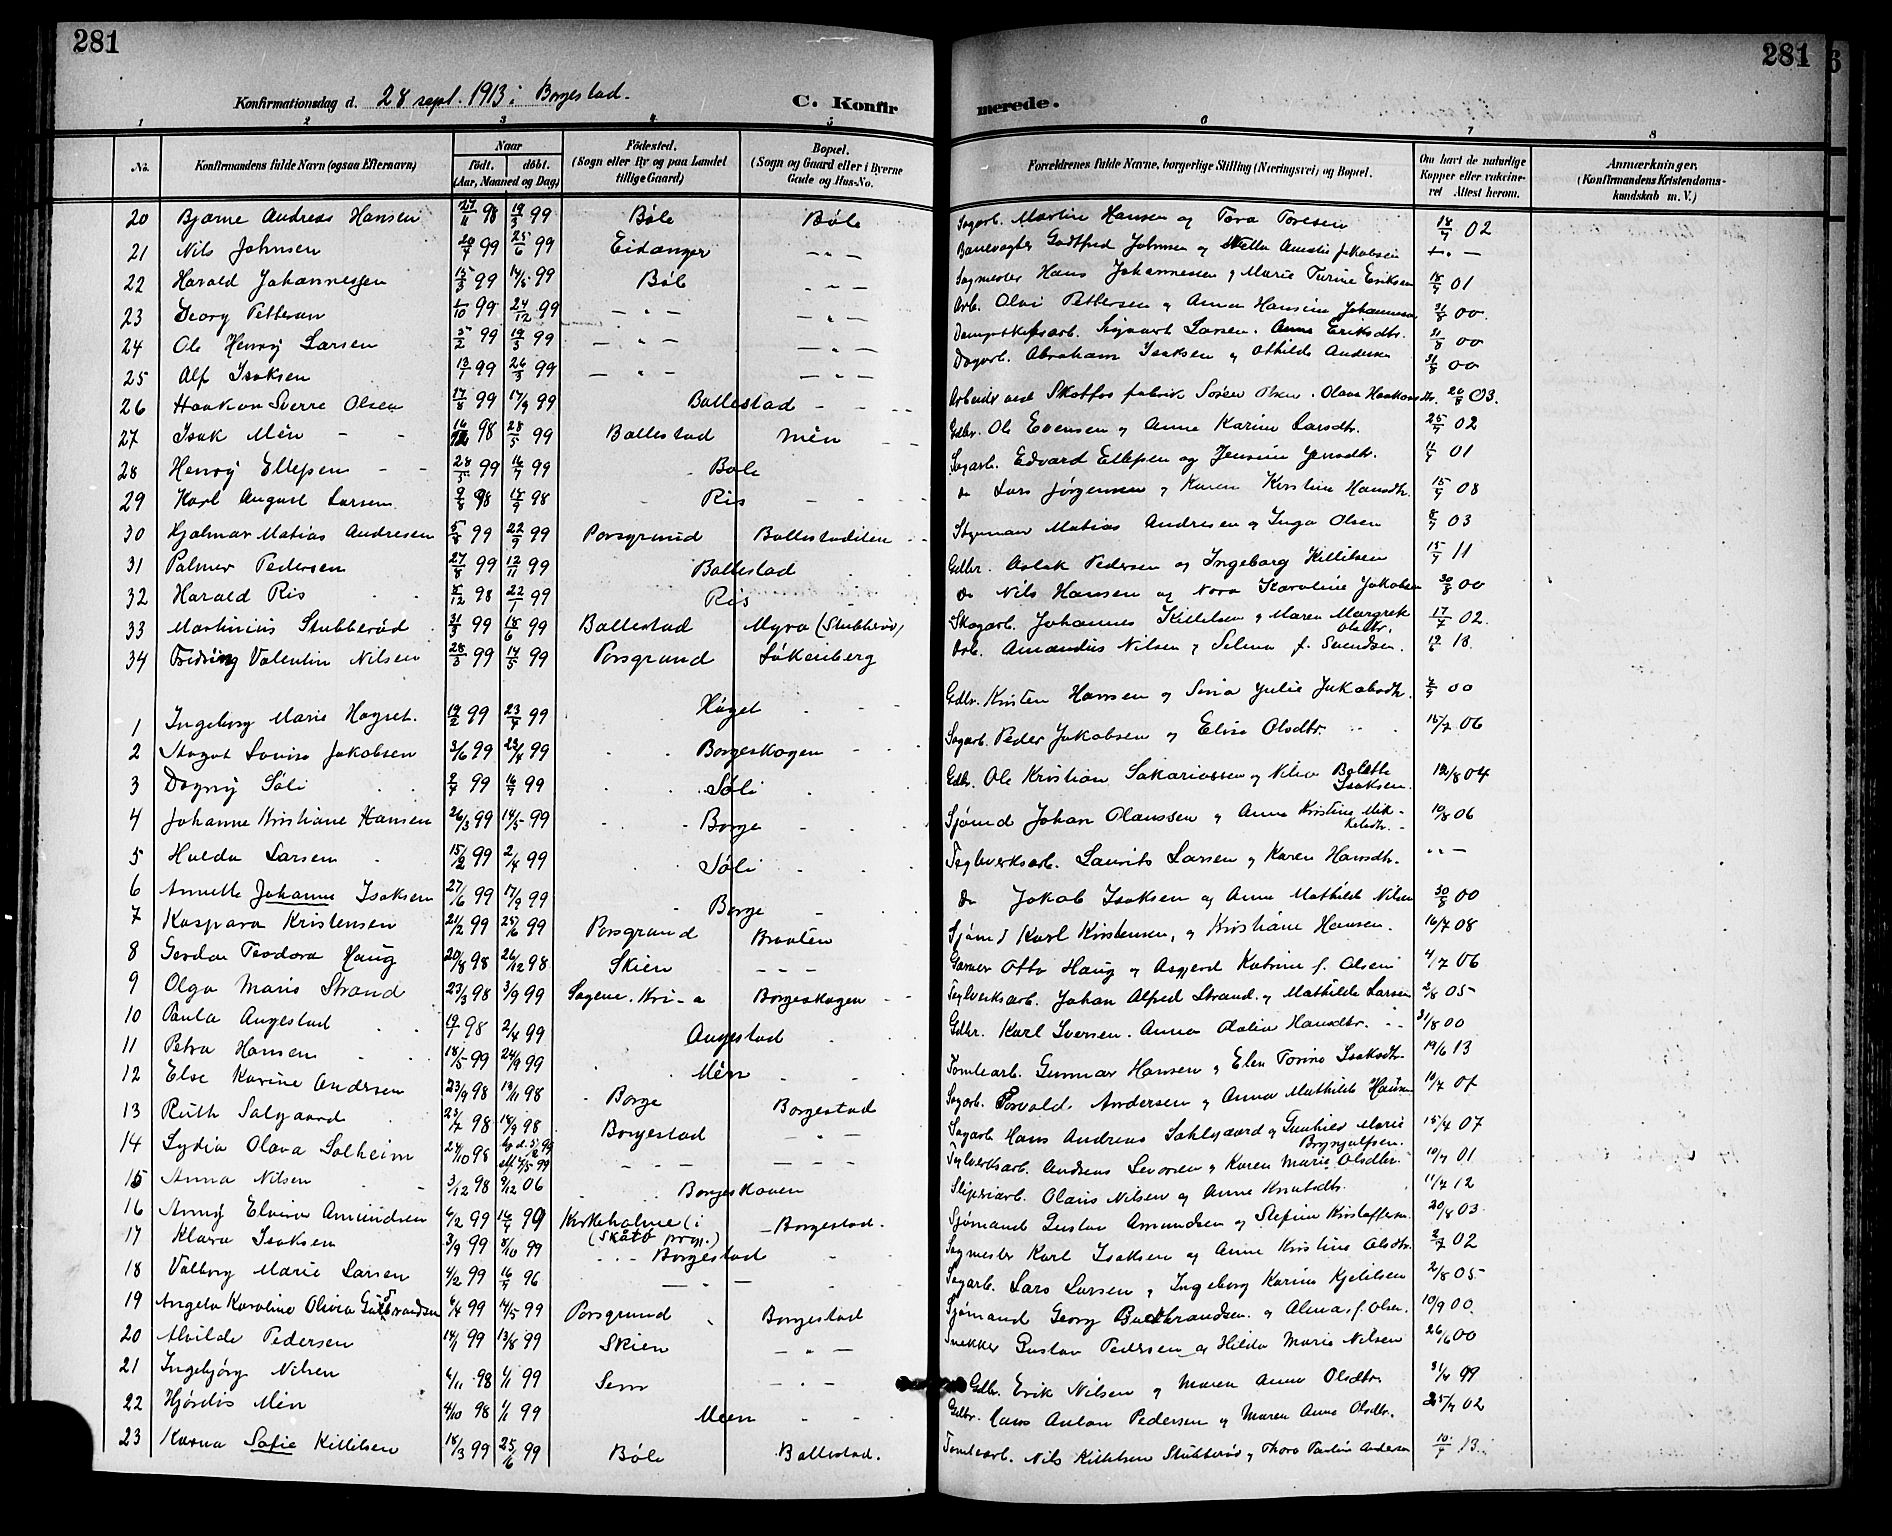 281
281
Konfirmationsdag d. 28 sept. 1913 i Borgestad.
C. Konfirmerede.
1 2 3 4 5 6 7 8
No.
Konfirmandens fulde Navn (ogsaa Efternavn)
Naar
født. døbt.
(Aar, Maaned og Dag)
Fødested.
(Sogn eller By og paa Landet
tillige Gaard)
Bopæl.
(Sogn og Gaard eller i Byerne
Gade og Hus-No.
Forældrenes fulde Navne, borgerlige Stilling (Næringsvei) og Bopæl.
Om havt de naturlige
Kopper eller vaccineret Attest herom.
Anmærkninger.
(Konfirmandens Kristendomskundskab m. V.)
20 Bjarne Andreas Hansen 27/11 98 19/3 99 Bøle Bøle Sagarb. Martin Hansen og Tora Toresen 18/9 02
21 Nils Johnsen 99 25/6 99 Eidanger - " - Banevogter Godtfred Johnsen og Amalie Jakobsen - " -
22 Harald Johannessen 15/3 99 14/5 99 Bøle - " - Sagmester Hans Johannessen og Marie Turine Eriksen 01
23 Georg Pettersen 1/10 99 24/12 99 - " - - " - Arb. Olai Pettersen og Anna Hansine Johannessen 31/8 00.
24 Ole Henry Larsen 5/2 99 19/3 99 - " - - " - Dampskibsarb. Sigvart Larsen. Anne Eriksdtr. 31/8 00
25 Alf Isaksen 13/1 99 26/3 99 - " - - " - Dagarb. Abraham Isaksen og Othilde Andersen 31/8 00
26 Haakon Sverre Olsen 17/8 99 17/9 99 Ballestad Arbeider ved Skotfos fabrik Søren Olsen. Olava Haakonsdtr. 03.
27 Isak Mén 16/12 98 28/5 99 Ballestad Mén Gdbr. Ole Evensen og Anne Karine Larsdtr. 25/9 02
28 Henry Ellefsen 28/5 99 16/7 99 Bøle Sagarb. Edvard Ellefsen og Jensine Jensdtr. 01
29 Karl August Larsen 9/8 98 18/9 98 Ris Do Lars Jørgensen og Karen Kirstine Hansdtr. 15/9 08
30 Hjalmar Matias Andresen 5/8 99 22/9 99 Porsgrund Ballestadlien Styrman Matias Andresen og Inga Olsen 03
31 Palmer Pedersen 27/8 99 12/11 99 Ballestad Gdbr. Aslak Pedersen og Ingeborg Killilsen 15/9 11
32 Harald Ris 8/12 98 22/1 99 Ris Do Nils Hansen og Nora Karoline Jakobsen 30/8 00
33 Martinius Stubberød 31/3 99 18/6 99 Ballestad Myra (Stubberød) Skogarb. Johannes Killilsen og Maren Margrete Olsdtr. 17/7 02.
34 Valentin Nilsen 28/3 99 14/5 99 Porsgrund Løkenberg Arb. Amandus Nilsen og Selma f. Svendsen. 12/6 13.
1 Ingeborg Marie Høgset. 19/2 99 23/4 99 Høget Gdbr. Kristen Hansen og Sina Julie Jakobsdtr. 00
2 Magot Lovise Jakobsen 3/6 99 99 Borgeskogen Sagarb. Peder Jakobsen og Elise Olsdtr. 16/7 06
3 Dagny Søli 99 99 Søli Gdbr. Ole Kristian Sakariassen og Bolette Isaksen. 04
4 Johanne Kristiane Hansen 26/3 99 14/5 99 Borge Sjømd Johan Olaussen og Anne Kristine Mikkelsdtr. 10/8 06
5 Hulda Larsen 15/2 99 2/4 99 Søli Teglverksarb. Laurits Larsen og Karen Hansdtr. " -
6 Annette Johanne Isaksen 27/6 99 17/9 99 Borge Do Jakob Isaksen og Anne Mathilde Nilsen 30/8 00
7 Kaspara Kristensen 21/2 99 25/6 99 Porsgrund Braaten Sjømd Karl Kristensen, og Kristiane Hansen. 16/7 08
8 Gerda Teodora Haug 20/8 98 26/12 98 Skien - - - Garver Otto Haug og Asgjerd Katrine f. Olsen 4/7 06
9 Olga Marie Strand 23/3 98 3/9 99 Sagene. Kri-a Borgeskogen Teglverksarb. Johan Alfred Strand. og Mathilde Larsen 2/8 05
10 Paula Augestad 19/1 98 2/4 99 Augestad Gdbr. Karl Iversen. Anna Olalia Hansdtr. 31/8 00
11 Petra Hansen 18/5 99 24/9 99 Mén Tomtearb. Gunnar Hansen og Elen Torine Isaksdtr. 19/6 13
12 Else Karine Andersen 23/9 98 19/11 98 Borge Borgestad Sagarb. Torvald Andersen og Anna Mathilde Hansen
13 Ruth Salgaard 98 18/9 98 Borgestad - " - Sagarb. Hans Andreas Sahlgaard og Gunhild Marie Brynjulfsen. 15/7 07
14 Lydia Olava Solheim 24/10 98 - - - - - - Teglverksarb. Andreas Severen og Karen Marie Olsdtr. 10/7 01
15 Anna Nilsen 3/12 98 9/12 06 Borgeskoven Sliperiarb. Olaus Nilsen og Anne Knutsdtr. 11/7 12
16 Anny Elvira Amundsen 6/2 99 99 Kirkeholme (i (Skåtø prgj.) Borgestad. Sjømand Gustav Amundsen og Stefine Kristoffersen 20/8 03.
17 Klara Isaksen 3/9 99 8/10 99 Borgestad Sagmester Karl Isaksen og Anne Kristine Olsdtr. 02
18 Valborg Marie Larsen 4/2 99 96 - " - Sagarb. Lars Larsen og Ingeborg Karine Kjelilsen 2/8 05
19 Angela Karoline Olivia Gulbrandsen 6/4 99 14/5 99 Porsgrund Borgestad Sjømand Georg Gulbrandsen. og Alma f. Olsen. 10/9 00.
20 Alvilde Pedersen 14/1 99 13/8 99 Skien - " - Snekker Gustav Pedersen og Hilda Marie Nilsen 26/6 00
21 Ingebjørg Nilsen 6/11 98 1/1 99 Sem - " - Gdbr. Erik Nilsen og Maren Anne Olsdtr. 99
22 Hjørdis Mén 4/10 98 1/1 99 Méen Gdbr. Hans Anton Pedersen og Maren Anne Olsdtr. 25/7 02
23 Karna Sofie Killilsen 18/3 99 25/6 99 Bøle Ballestad. Tomtearb. Nils Killilsen Stubberød og Thora Andersen 13.